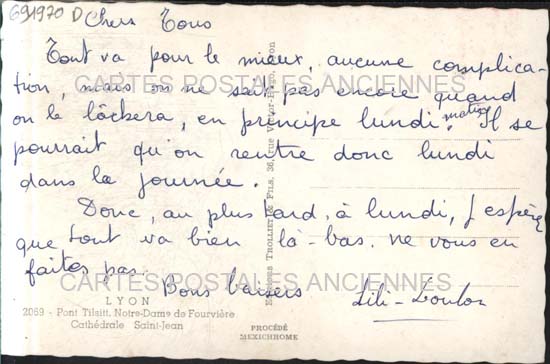 691970 D
Chers Tous
Tout va pour le mieux, aucune complica-
tion, mais on ne sait pas encore quand
on le lâchera, en principe lundi matin. Il se
pourrait qu'on rentre donc lundi
dans la journée.
Donc, au plus tard, à lundi, j'espère
que tout va bien là-bas. ne vous en
faites pas.
Bons baisers
Lili-Loulou
CARTES POSTALES ANCIENNES
CARTES POSTALES ANCIENNES
LYON
2069 - Pont Tilsitt, Notre-Dame de Fourvière
Cathédrale Saint-Jean
PROCÉDÉ
MEXICHROME
TROLLIET & FILS, 36, rue Victor-Hugo, Lyon